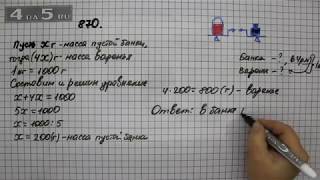 4 на 5 RU
870.
Пусть x г - масса пустой банки,
тогда (4x) г - масса варенья
1 кг = 1000 г
Составим и решим уравнение
x + 4x = 1000
5x = 1000
x = 1000 : 5
x = 200 (г) - масса пустой банки
Банка - ?
Варенье - ?
4 · 200 = 800 (г) - варенье
Ответ: в банке